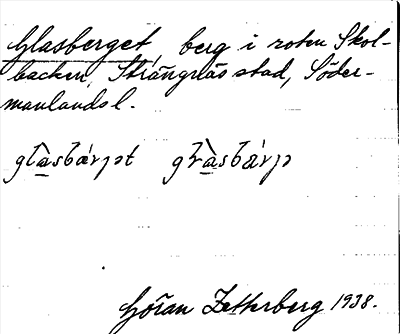 Glasberget, berg i roten Skol-
backen, Strängnäs stad, Söder-
manlandsl.
Göran Zetterberg 1938.